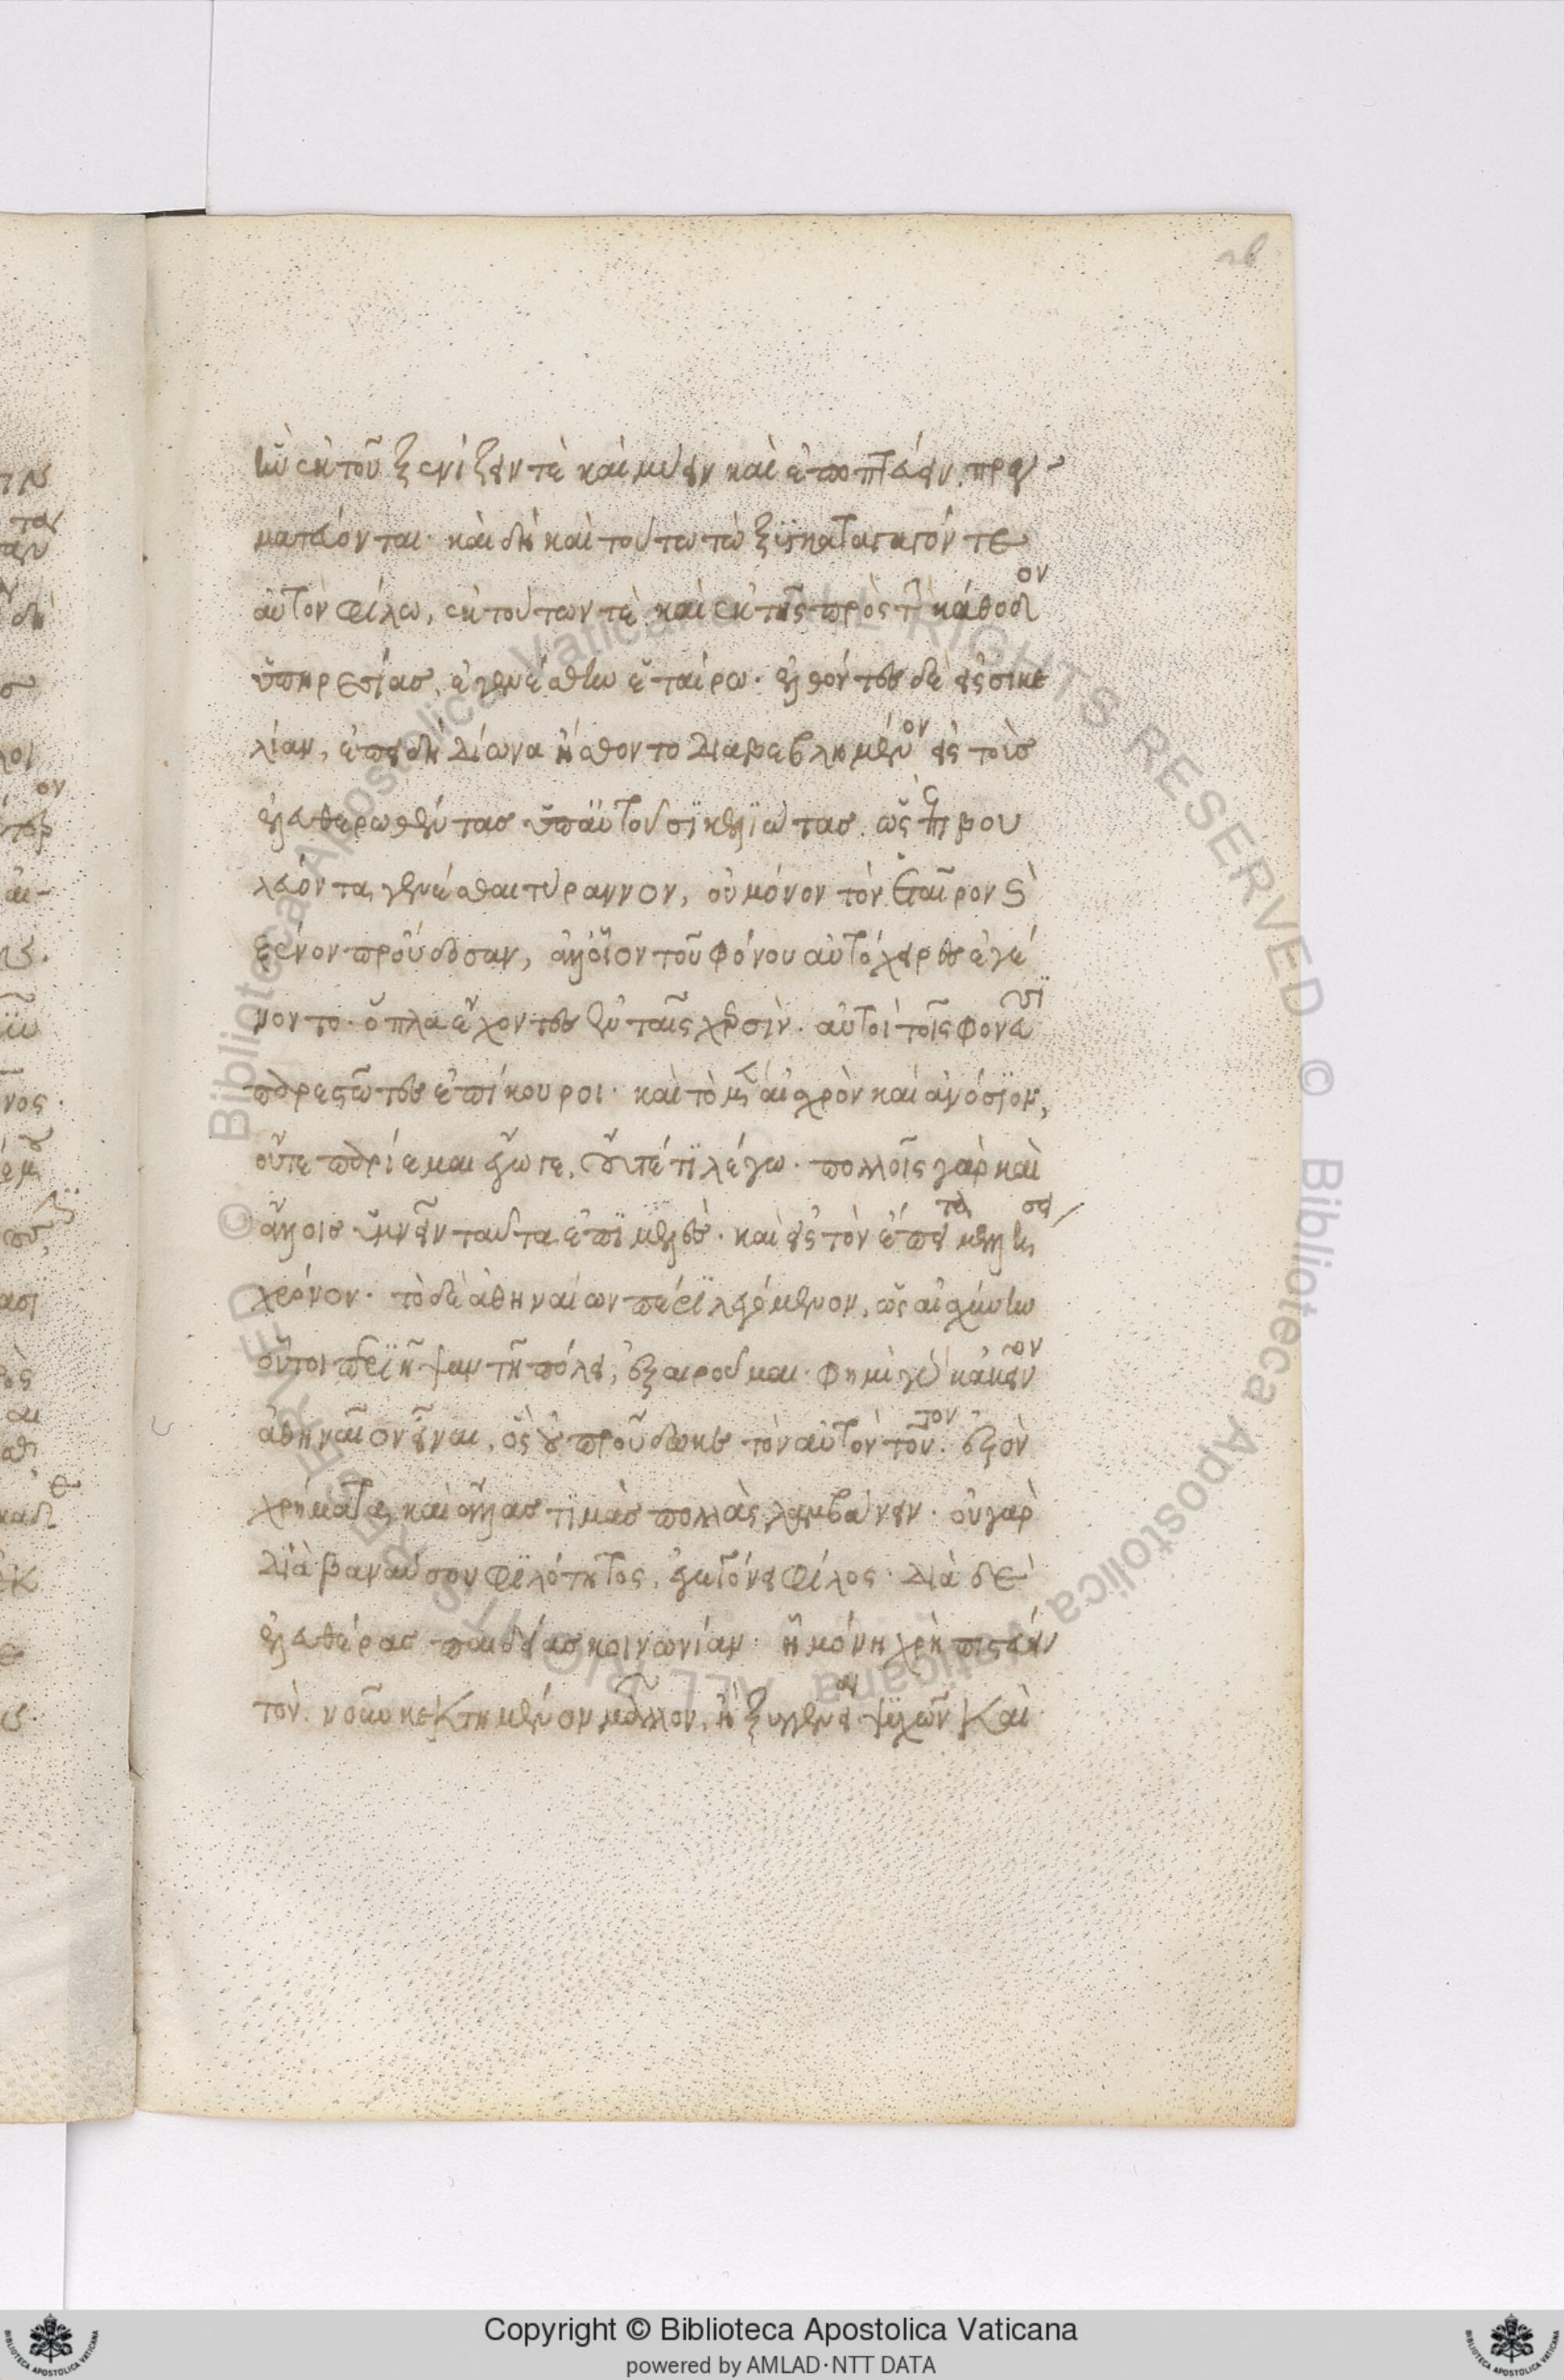 ἣν ἐκ τοῦ ξενίζειν τὲ καὶ μυεῖν καὶ ἐποπτεύειν. πραγ
ματεύονται· καὶ δὴ καὶ τούτω τὼ ξυγκαταγαγόντε
αὐτὸν φίλω, ἐκ τούτων τὲ καὶ ἐκ τῆς πρὸς τὴν κάθοδον
ὑπηρεσίας, ἐγενέσθην ἑταίρω. ἐλθόντες δὲ εἰς σικε
λίαν, ἐπειδὴ Δίωνα ἤσθοντο διαβεβλημένον εἰς τοὺς
ἐλευθερωθέντας ὑπ' αὐτοῦ σικελιώτας. ὡς ἐπιβου
λεύοντα γενέσθαι τύραννον, οὐ μόνον τὸν ἑταῖρον καὶ
ξένον προύδοσαν, ἀλλ' οἷον τοῦ φόνου αὐτόχειρες ἐγέ
νοντο· ὅπλα ἔχοντες ἐν ταῖς χερσὶν. αὐτοὶ τοῖς φονεῦσι
παρεστῶτες ἐπίκουροι. καὶ τὸ μὲν αἰσχρὸν καὶ ἀνόσιον,
οὔτε παρίεμαι ἔγωγε, οὔτέ τι λέγω. πολλοῖς γὰρ καὶ
ἄλλοις ὑμνεῖν ταῦτα ἐπιμελὲς. καὶ εἰς τὸν ἔπειτα μελήσει
χρόνον. τὸ δὲ ἀθηναίων πέρι λεγόμενον, ὡς αἰσχύνην
οὗτοι περιῆψαν τῇ πόλει, ἐξαιροῦμαι. φημὶ γὰρ κἀκεῖνον
ἀθηναῖον εἶναι, ὃς οὐ προύδωκε τὸν αὐτὸν τοῦτον. ἐξὸν
χρήματα καὶ ἄλλας τιμὰς πολλὰς λαμβάνειν. οὐ γὰρ
διὰ βαναύσου φιλότητος, ἐγεγόνει φίλος. διὰ δὲ
ἐλευθέρας παιδείας κοινωνίαν. ᾗ μόνη χρὴ πιστεύειν
τὸν νοῦν κεκτημένον μᾶλλον, ἢ ξυγγενεία ψυχῶν καὶ
Copyright © Biblioteca Apostolica Vaticana
powered by AMLAD·NTT DATA